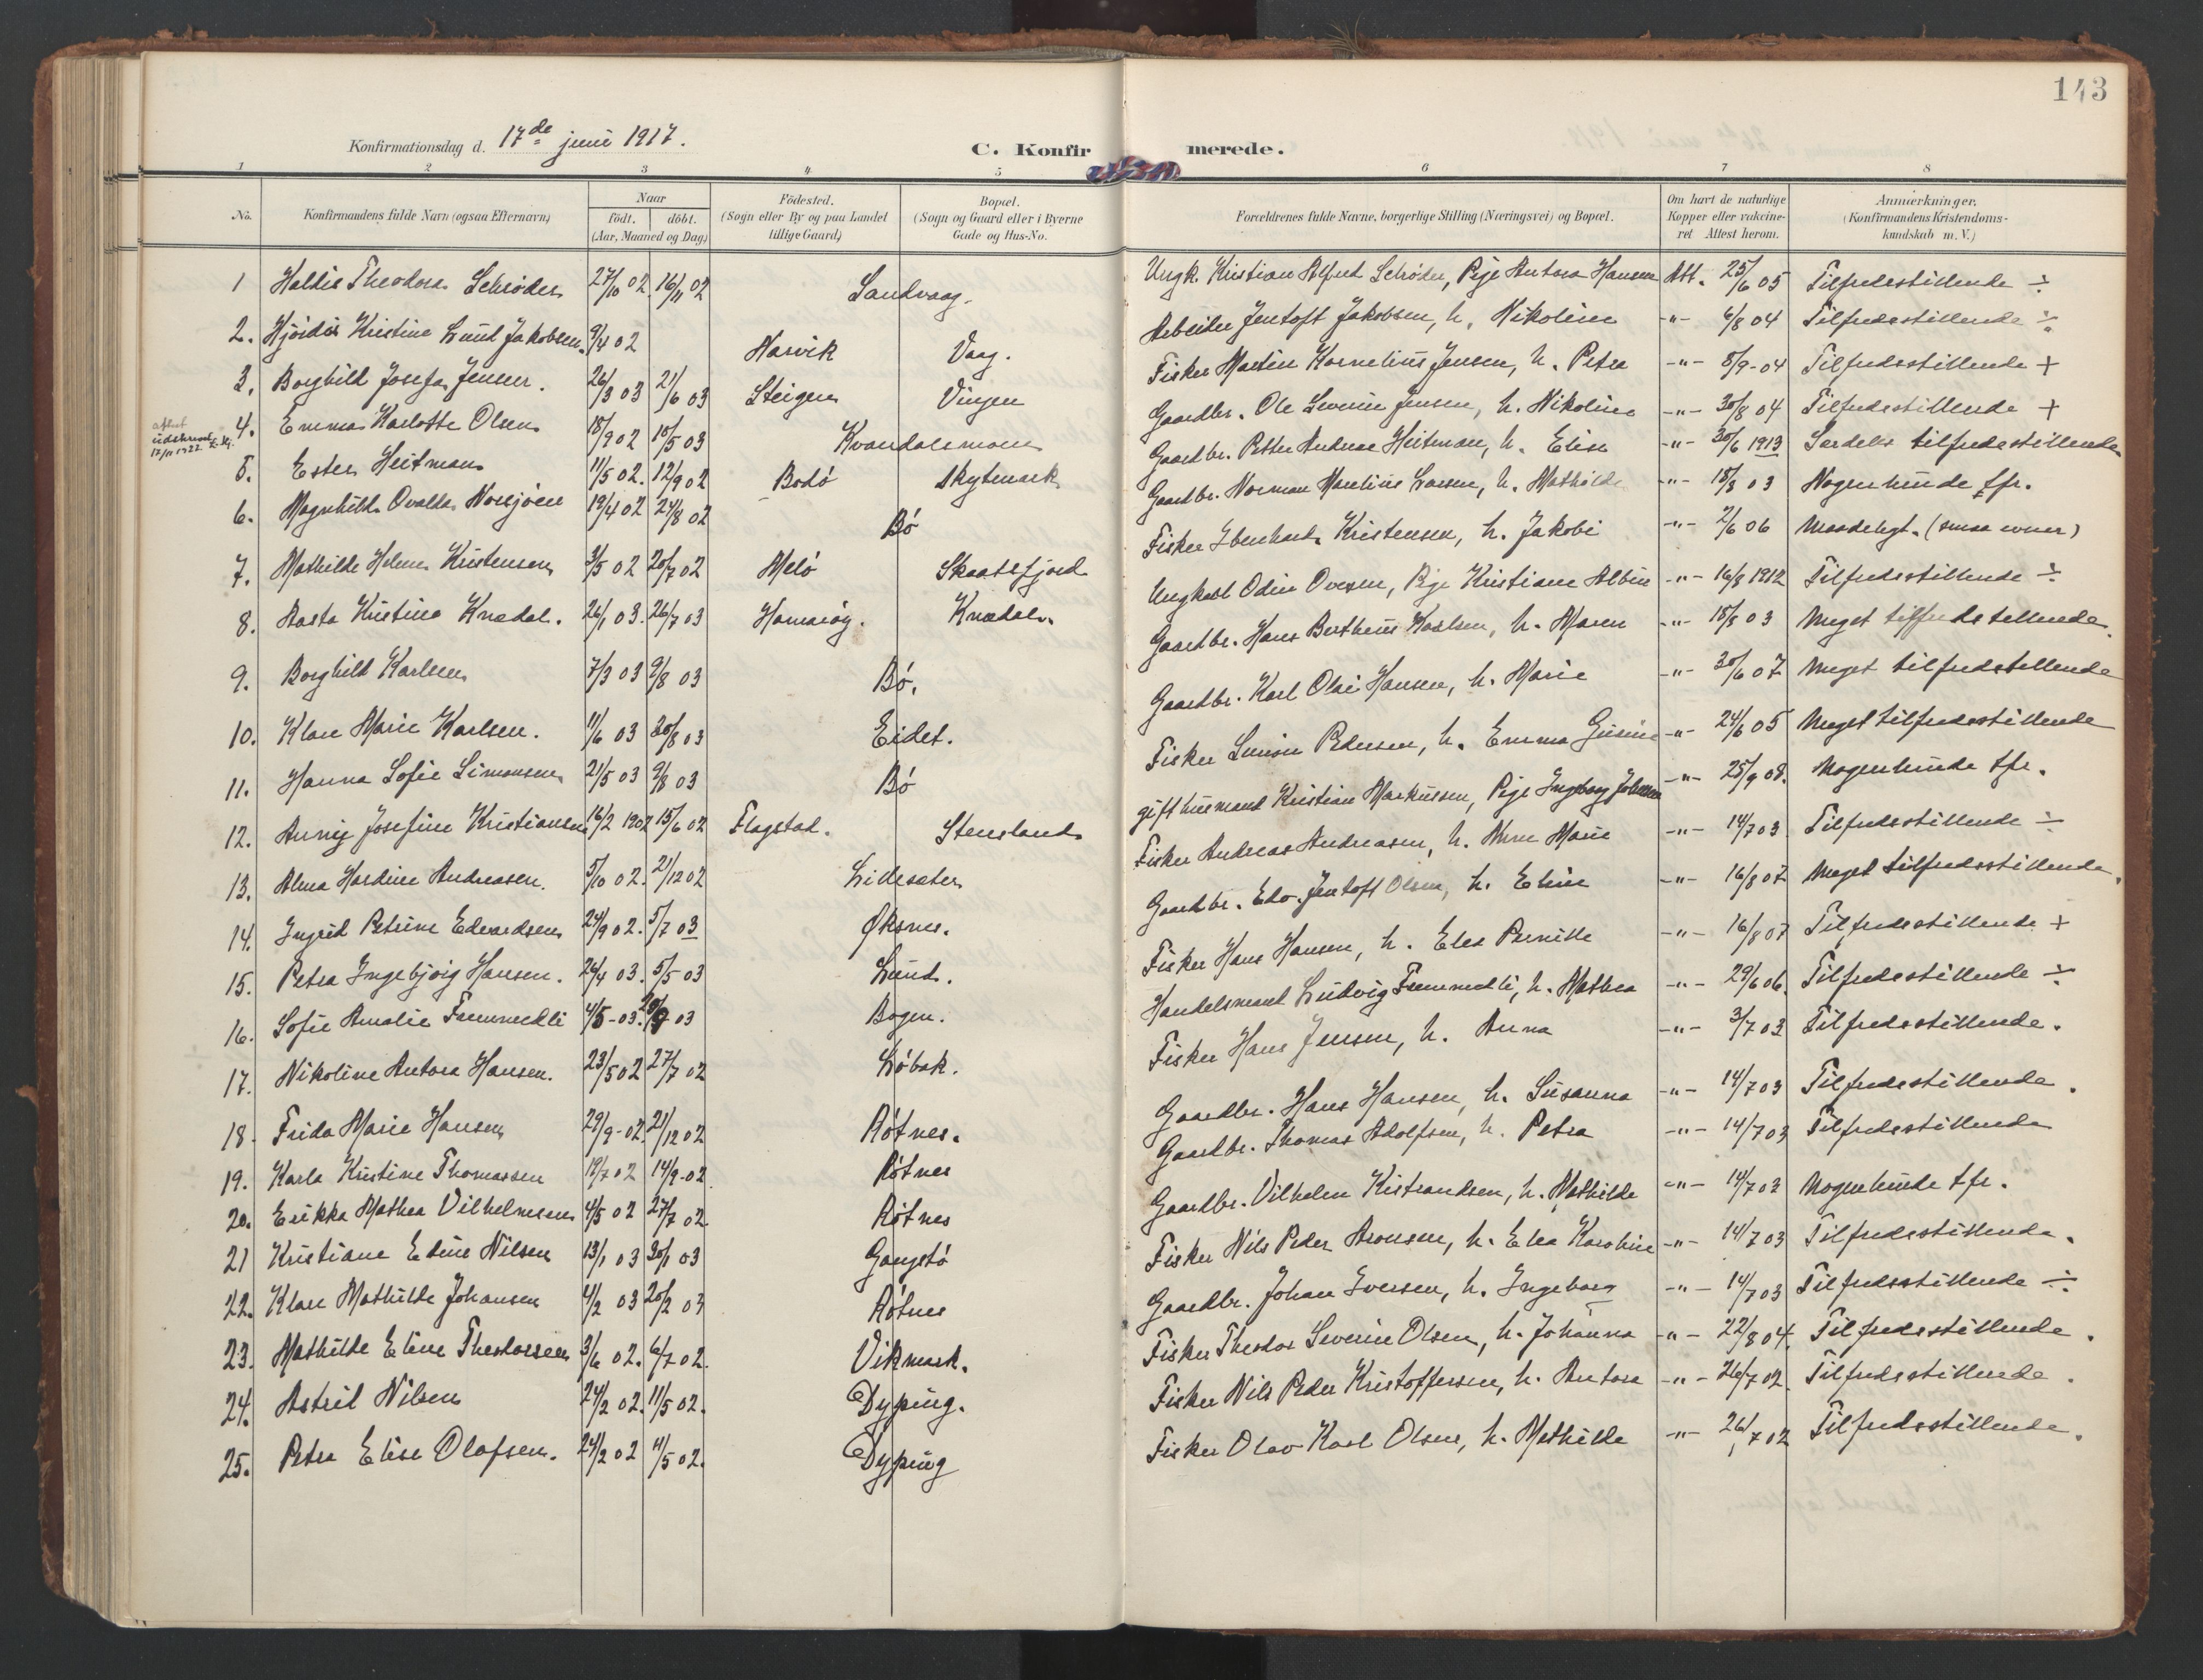 143
Konfirmationsdag d. 17de juni 1917.
C. Konfirmerede.
1 2 3 4 5 6 7 8
No. Konfirmandens fulde Navn (ogsaa Efternavn) Naar födt. döbt. (Aar, Maaned og Dag) Födested. (Sogn eller By og paa Landet tillige Gaard) Bopæl. (Sogn og Gaard eller i Byerne Gade og Hus-No. Forældrenes fulde Navne, borgerlige Stilling (Næringsvei) og Bopæl. Om havt de naturlige Kopper eller vakcineret Attest herom. Anmærkninger. (Konfirmandens Kristendomskundskab m. V.)
1 Haldis Theodora Schrøder 27/10 02. 16/11 02 Sandvaag. Ungk. Kristian Alfred Schrøder, Pige Antora Hansen Att. 25/6 05 Tilfredsstillende ÷
2. Hjördis Kristine Lund Jakobsen. 9/4 02 Narvik Vaag. Arbeider Jentoft Jakobsen, h. Nikoline -"- 6/8 04 Tilfredsstillende ÷
3. Borghild Josefa Jensen. 26/3 03 21/6 03 Steigen Vinjen Fisker Martin Kornelius Jensen, h. Petra -"- 8/9-04 Tilfredsstillende +
attest udskrevet 17/11 1922
4. Emma Karlotte Olsen 18/9 02 10/5 03 Kvandalsmoen Gaardbr. Ole Severin Jensen, h. Nikoline -"- 30/8 04 Tilfredsstillende +
5. Ester Heitman 11/5 02. 12/9 02 Bodö Skytmark Gaardbr. Petter Andreas Heitman, h. Elise -"- 30/6 1913 Særdeles tilfredsstillende
6. Magnhild Ovalda Norsjöen 19/4 02 24/8 02 Bö Gaardbr. Norman Marelius Larsen, h. Mathilde -"- 18/8 03 Nogenlunde tfr.
7. Mathilde Helene Kristensen 3/5 02 20/7 02 Melö Skaatsfjord Fisker Ebenhard Kristensen, h. Jakobi -"- 2/6 06 Maadeligt. (smaa evner)
8. Aasta Kristine Knædal. 26/1 03. 26/7 03 Hamaröy. Knædal. Ungkarl Odin Ovesen, Pige Kristiane Albin -"- 16/8 1912 Tilfredsstillende ÷
9. Borghild Karlsen 7/3 03 9/8 03 Bö. Gaardbr. Hans Bertheus Karlsen, h. Maren -"- 18/8 03 Meget tilfredsstillende.
10. Klara Marie Karlsen. 11/6 03 30/8 03 Eidet. Gaardbr. Karl Olai Hansen, h. Marie -"- 30/6 07 Meget tilfredsstillende
11. Hanna Sofie Simonsen 21/5 03 9/8 03 Bö Fisker Simon Pedersen, h. Emma Gusine -"- 24/6 05 Meget tilfredsstillende
12. Anny Josefine Kristiansen 16/2 1902 15/6 02 Flagstad. Stensland gift husmand Kristian Markussen, Pige Ingeborg Johnsen -"- 25/9 08. Nogenlunde tfr.
13. Alma Hardine Andreasen. 5/10 02. 21/12 02 Lillesæter Fisker Andreas Andreasen, h. Anne Marie -"- 14/7 03 Tilfredsstillende ÷
14. Ingrid Petrine Edvardsen 24/9 02. 5/7 03 Øksnes. Gaardbr. Edv. Jentoft Olsen, h. Eline -"- 16/8 07 Meget tilfredsstillende.
15. Petra Ingebjörg Hansen. 24/4 03. 5/5 03 Lund. Fisker Hans Hansen, h. Elea Pernille -"- 16/8 07 Tilfredsstillende +
16. Sofie Amalie Fremmedli 4/5-03. 03 Bogen. Handelsmand Ludvig Fremmedli, h. Mathea -"- 29/6 06. Tilfredsstillende ÷
17. Nikoline Antora Hansen. 23/5 02 27/7 02 Löbak. Fisker Hans Jensen, h. Anna -"- 3/7 03 Tilfredsstillende.
18. Frida Marie Hansen 29/9-02. 21/12 02 Rötnes. Gaardbr. Hans Hansen, h. Susanna -"- 14/7 03 Tilfredsstillende.
19. Karla Kristine Thomassen 19/7 02 14/9-02 Rötnes Gaardbr. Thomas Adolfsen, h. Petra -"- 14/7 03 Tilfredsstillende
20. Erikka Mathea Vilhelmsen 4/5 02 27/7 02. Rötnes Gaardbr. Vilhelm Kistrandsen, h. Mathilde -"- 14/7 03 Nogenlunde tfr.
21 Kristiane Edine Nilsen 13/1 03 30/1 03 Gangstö Fisker Nils Peder Aronsen, h. Elea Karoline -"- 14/7 03 Tilfredsstillende.
22. Klara Mathilde Johansen 4/2 03 20/2 03 Rötnes Gaardbr. Johan Iversen, h. Ingeborg -"- 14/7 03 Tilfredsstillende ÷
23. Mathilde Eline Theodorsen 3/6 02. 6/7 02. Vikmark. Fisker Theodor Severin Olsen, h. Johanna -"- 22/8 04. Tilfredsstillende.
24. Astrid Nilsen 24/2 02. 11/5 02. Dyping. Fisker Nils Peder Kristoffersen, h. Antora -"- 26/7 02. Tilfredsstillende.
25. Petra Elise Olafsen. 24/2 02 11/5 02. Dyping Fisker Olav Karl Olsen, h. Mathilde -"- 26/7 02 Tilfredsstillende.